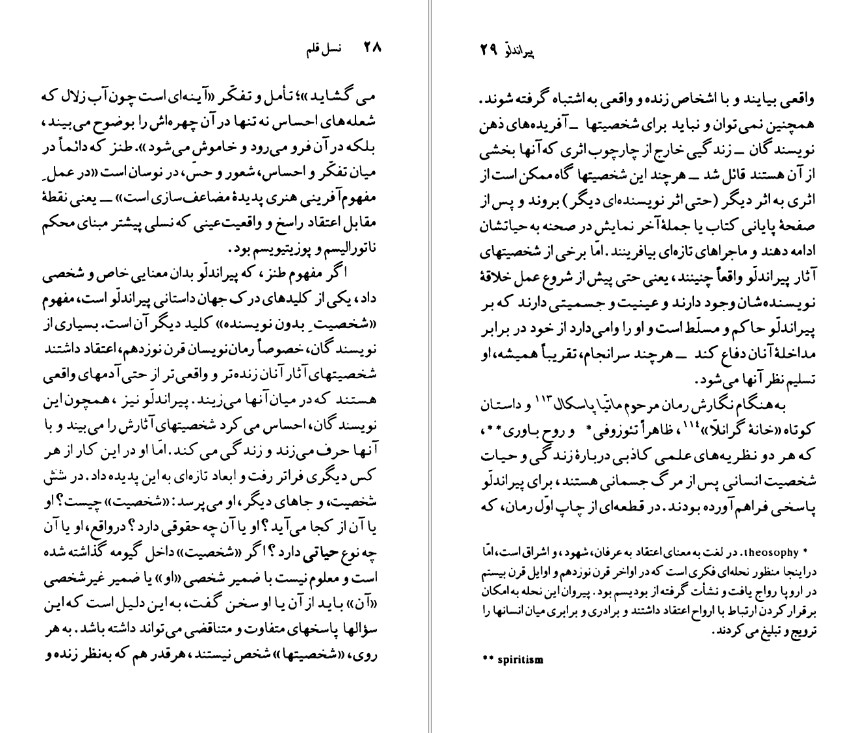 ۲۸ نسل قلم
می‌گشاید»؛ تأمل و تفکّر «آینه‌ای است چون آب زلال که
شعله‌های احساس نه تنها در آن چهره‌اش را بوضوح می‌بیند،
بلکه در آن فرو می‌رود و خاموش می‌شود». طنز که دائماً در
میان تفکّر و احساس، شعور و حسّ، در نوسان است «در عملِ
مفهوم‌آفرینی هنری پدیدهٔ مضاعف‌سازی است» ــ یعنی نقطهٔ
مقابل اعتقاد راسخ و واقعیت عینی که نسلی پیشتر مبنای محکم
ناتورالیسم و پوزیتیویسم بود.
اگر مفهوم طنز، که پیراندلّو بدان معنایی خاص و شخصی
داد، یکی از کلیدهای درک جهان داستانی پیراندلّو است، مفهوم
«شخصیتِ بدون نویسنده» کلید دیگر آن است. بسیاری از
نویسندگان، خصوصاً رمان‌نویسان قرن نوزدهم، اعتقاد داشتند
شخصیتهای آثار آنان زنده‌تر و واقعی‌تر از حتی آدمهای واقعی
هستند که در میان آنها می‌زیند. پیراندلّو نیز، همچون این
نویسندگان، احساس می‌کرد شخصیتهای آثارش را می‌بیند و با
آنها حرف می‌زند و زندگی می‌کند. امّا او در این کار از هر
کس دیگری فراتر رفت و ابعاد تازه‌ای به این پدیده داد. در شش
شخصیت، و جاهای دیگر، او می‌پرسد: «شخصیت» چیست؟ او
یا آن از کجا می‌آید؟ او یا آن چه حقوقی دارد؟ درواقع، او یا آن
چه نوع حیاتی دارد؟ اگر «شخصیت» داخل گیومه گذاشته شده
است و معلوم نیست با ضمیر شخصی «او» یا ضمیر غیرشخصی
«آن» باید از آن یا او سخن گفت، به این دلیل است که این
سؤالها پاسخهای متفاوت و متناقضی می‌تواند داشته باشد. به هر
روی، «شخصیتها» شخص نیستند، هرقدر هم که به‌نظر زنده و
پیراندلّو ۲۹
واقعی بیایند و با اشخاص زنده و واقعی به اشتباه گرفته شوند.
همچنین نمی‌توان و نباید برای شخصیتها ــ آفریده‌های ذهن
نویسندگان ــ زندگیی خارج از چارچوب اثری که آنها بخشی
از آن هستند قائل شد ــ هرچند این شخصیتها گاه ممکن است از
اثری به اثر دیگر (حتی اثر نویسنده‌ای دیگر) بروند و پس از
صفحهٔ پایانی کتاب یا جملهٔ آخر نمایش در صحنه به حیاتشان
ادامه دهند و ماجراهای تازه‌ای بیافرینند. امّا برخی از شخصیتهای
آثار پیراندلّو واقعاً چنینند، یعنی حتی پیش از شروع عمل خلاقهٔ
نویسنده‌شان وجود دارند و عینیت و جسمیتی دارند که بر
پیراندلّو حاکم و مسلّط است و او را وامی‌دارد از خود در برابر
مداخلهٔ آنان دفاع کند ــ هرچند سرانجام، تقریباً همیشه، او
تسلیم نظر آنها می‌شود.
به‌هنگام نگارش رمان مرحوم ماتیّا پاسکال۱۱۳ و داستان
کوتاه «خانهٔ گرانلّا»۱۱۴، ظاهراً تئوزوفی* و روح باوری**،
که هر دو نظریه‌های علمی کاذبی دربارهٔ زندگی و حیات
شخصیت انسانی پس از مرگ جسمانی هستند، برای پیراندلّو
پاسخی فراهم آورده بودند. در قطعه‌ای از چاپ اوّل رمان، که
* theosophy. در لغت به معنای اعتقاد به عرفان، شهود، و اشراق است، امّا
دراینجا منظور نحله‌ای فکری است که در اواخر قرن نوزدهم و اوایل قرن بیستم
در اروپا رواج یافت و نشأت گرفته از بودیسم بود. پیروان این نحله به امکان
برقرار کردن ارتباط با ارواح اعتقاد داشتند و برادری و برابری میان انسانها را
ترویج و تبلیغ می‌کردند.
** spiritism